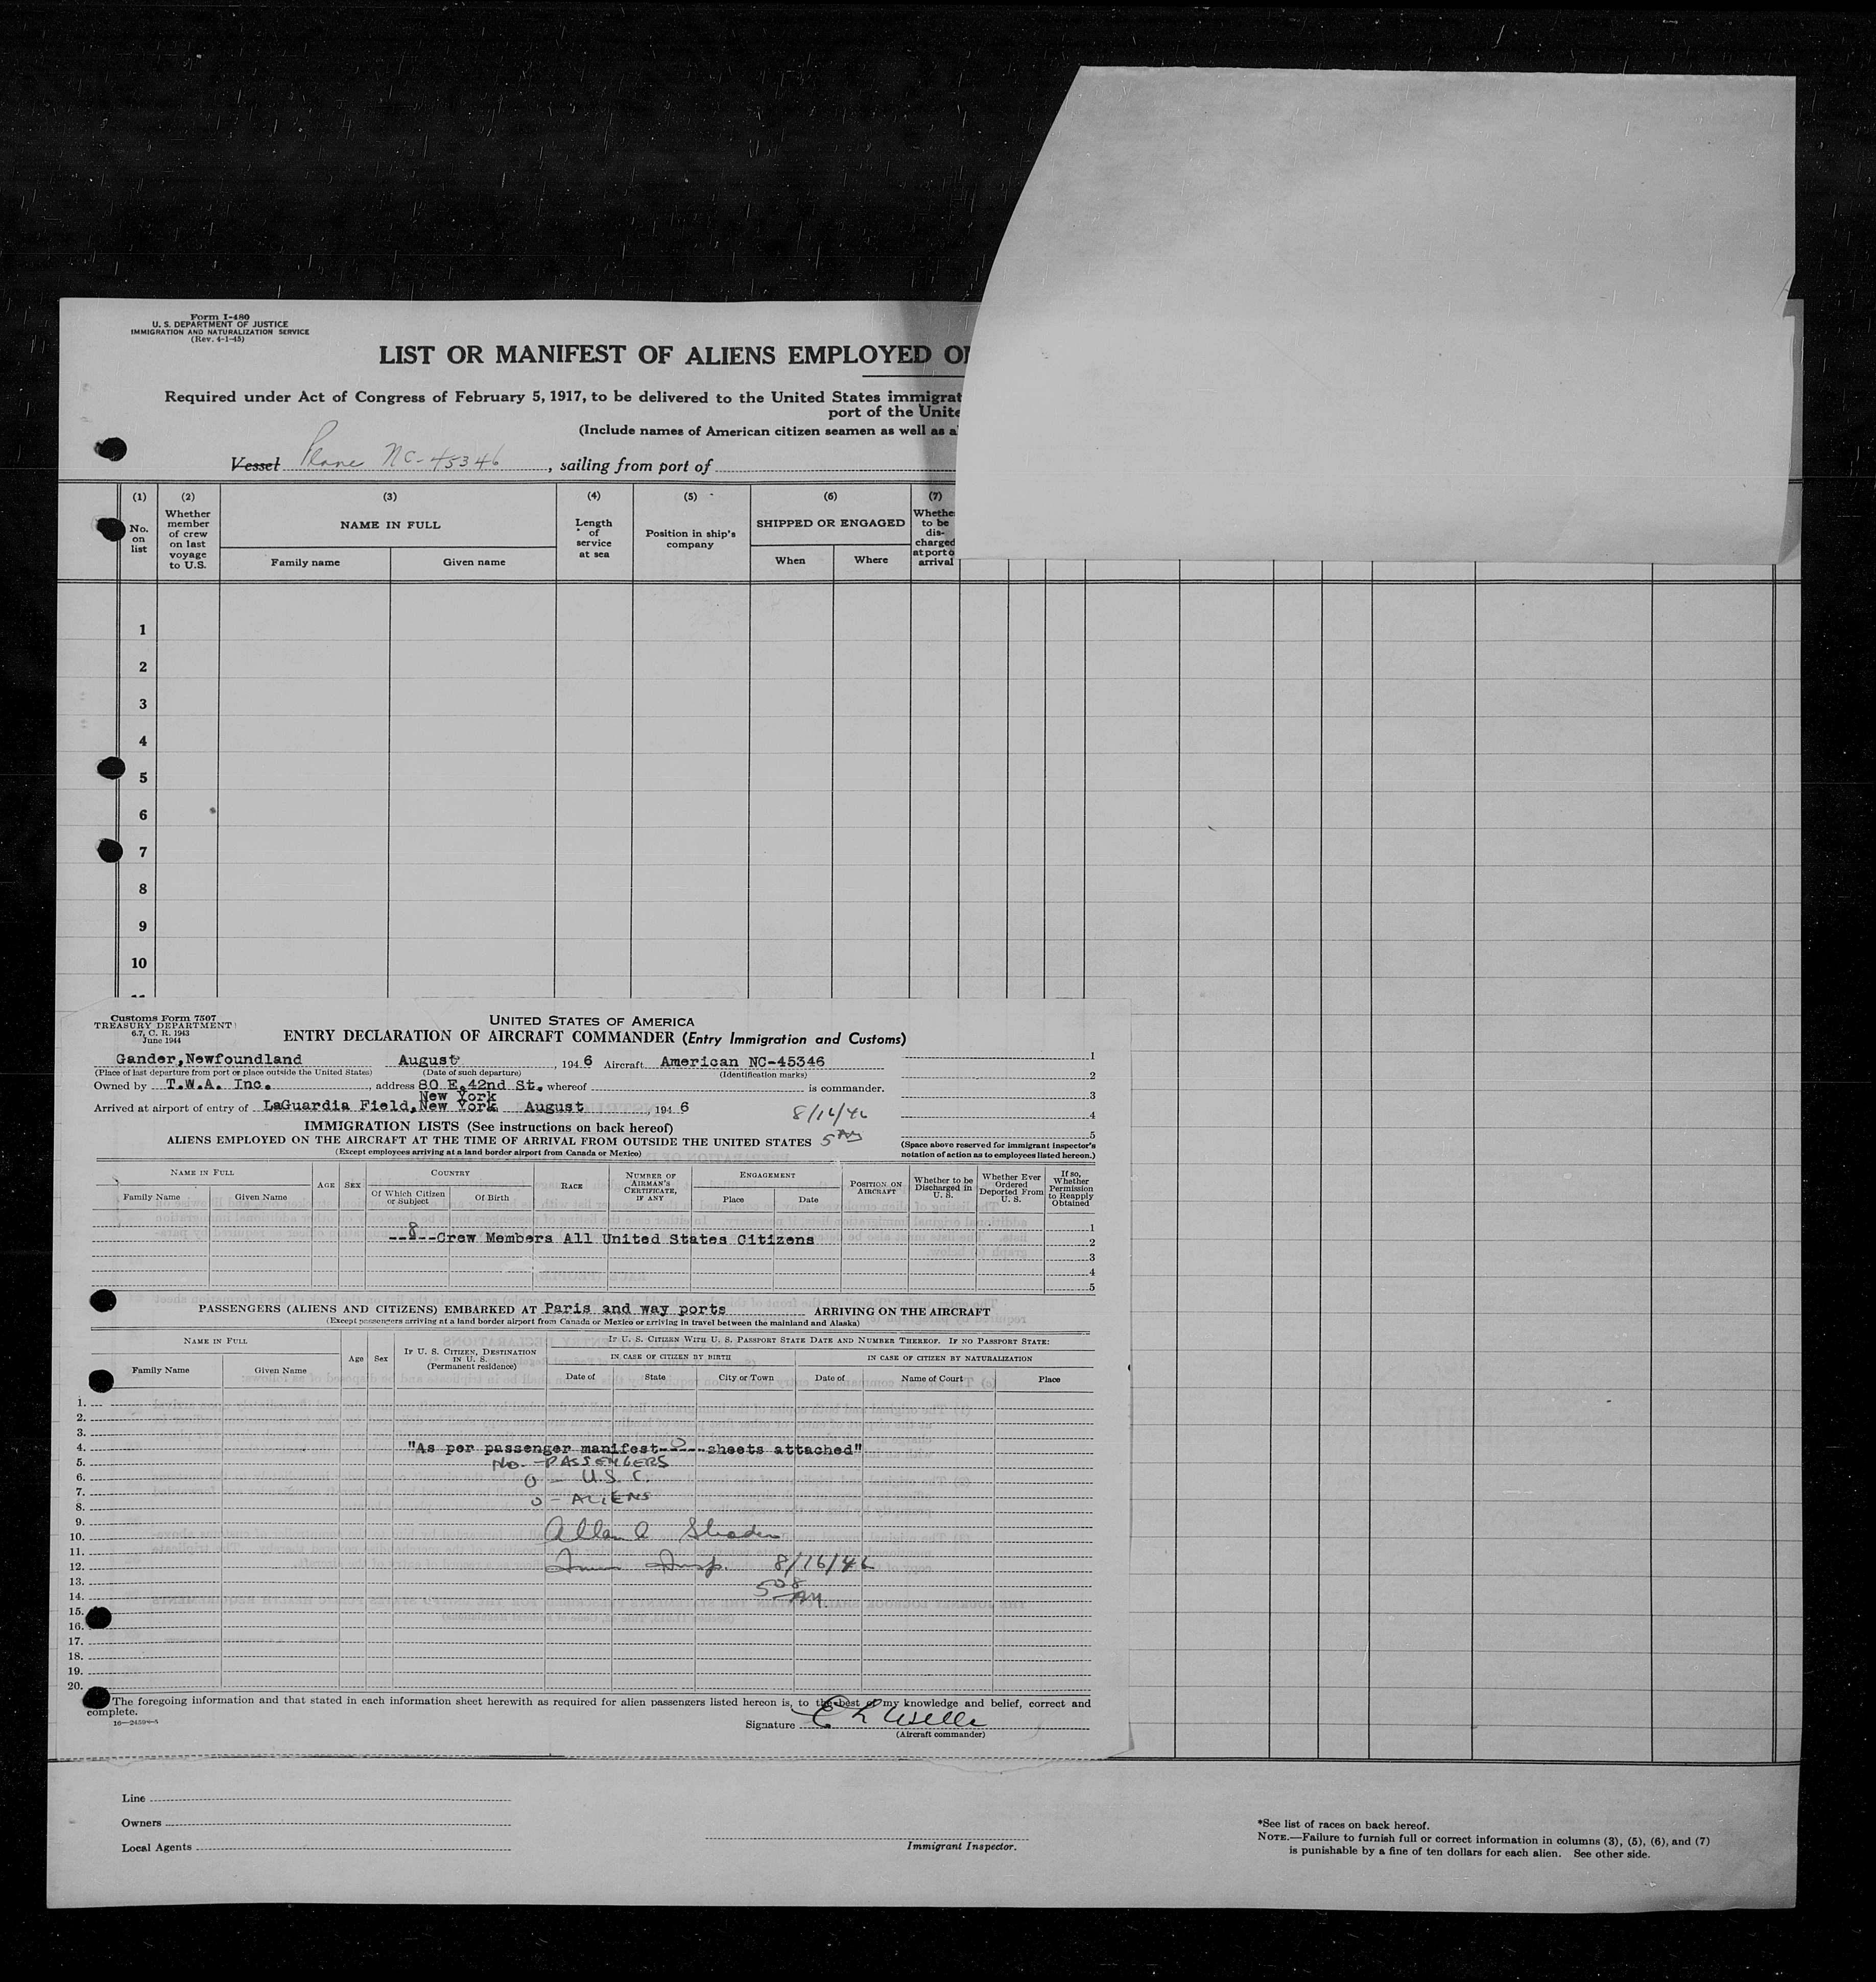 Form I-480
U. S. DEPARTMENT OF JUSTICE
IMMIGRATION AND NATURALIZATION SERVICE
(Rev. 4-1-45)
LIST OR MANIFEST OF ALIENS EMPLOYED O
Required under Act of Congress of February 5, 1917, to be delivered to the United States immigrat
port of the Unite
(Include names of American citizen seamen as well as a
Vessel Plane NC-45346, sailing from port of
(1) (2) (3) (4) (5) (6) (7)
No. on list
Whether member of crew on last voyage to U.S.
NAME IN FULL
Family name Given name
Length of service at sea
Position in ship's company
SHIPPED OR ENGAGED
When Where
Whethe to be dis- charged at port o arrival
1
2
3
4
5
6
7
8
9
10
Customs Form 7507
TREASURY DEPARTMENT
6.7, C. R. 1943
June 1944
UNITED STATES OF AMERICA
ENTRY DECLARATION OF AIRCRAFT COMMANDER (Entry Immigration and Customs)
Gander, Newfoundland August, 1946 Aircraft American NC-45346
(Place of last departure from port or place outside the United States) (Date of such departure) (Identification marks)
Owned by T.W.A. Inc., address 80 E. 42nd St. whereof is commander.
New York
Arrived at airport of entry of LaGuardia Field, New York August, 1946
8/16/46
5 AM
1
2
3
4
5
IMMIGRATION LISTS (See instructions on back hereof)
ALIENS EMPLOYED ON THE AIRCRAFT AT THE TIME OF ARRIVAL FROM OUTSIDE THE UNITED STATES
(Except employees arriving at a land border airport from Canada or Mexico)
(Space above reserved for immigrant inspector's
notation of action as to employees listed hereon.)
NAME IN FULL
Family Name Given Name
AGE SEX
COUNTRY
Of Which Citizen or Subject Of Birth
RACE
NUMBER OF AIRMAN'S CERTIFICATE, IF ANY
ENGAGEMENT
Place Date
POSITION ON AIRCRAFT
Whether to be Discharged in U. S.
Whether Ever Ordered Deported From U. S.
If so, Whether Permission to Reapply Obtained
1
--8--Crew Members All United States Citizens 2
3
4
5
PASSENGERS (ALIENS AND CITIZENS) EMBARKED AT Paris and way ports ARRIVING ON THE AIRCRAFT
(Except passengers arriving at a land border airport from Canada or Mexico or arriving in travel between the mainland and Alaska)
NAME IN FULL
Family Name Given Name
Age Sex
IF U. S. CITIZEN, DESTINATION IN U. S. (Permanent residence)
IF U. S. CITIZEN WITH U. S. PASSPORT STATE DATE AND NUMBER THEREOF. IF NO PASSPORT STATE:
IN CASE OF CITIZEN BY BIRTH IN CASE OF CITIZEN BY NATURALIZATION
Date of State City or Town Date of Name of Court Place
1.
2.
3.
4. "As per passenger manifest--0--sheets attached"
5. NO - PASSENGERS
6. 0 - U.S.C.
7.
8. 0 - ALIENS
9.
10. Allan
11.
12. Insp. 8/16/46
13.
14. 508 AM.
15.
16.
17.
18.
19.
20.
The foregoing information and that stated in each information sheet herewith as required for alien passengers listed hereon is, to the best of my knowledge and belief, correct and
complete.
Signature
(Aircraft commander)
Line
Owners
Local Agents
Immigrant Inspector.
*See list of races on back hereof.
NOTE.—Failure to furnish full or correct information in columns (3), (5), (6), and (7)
is punishable by a fine of ten dollars for each alien. See other side.